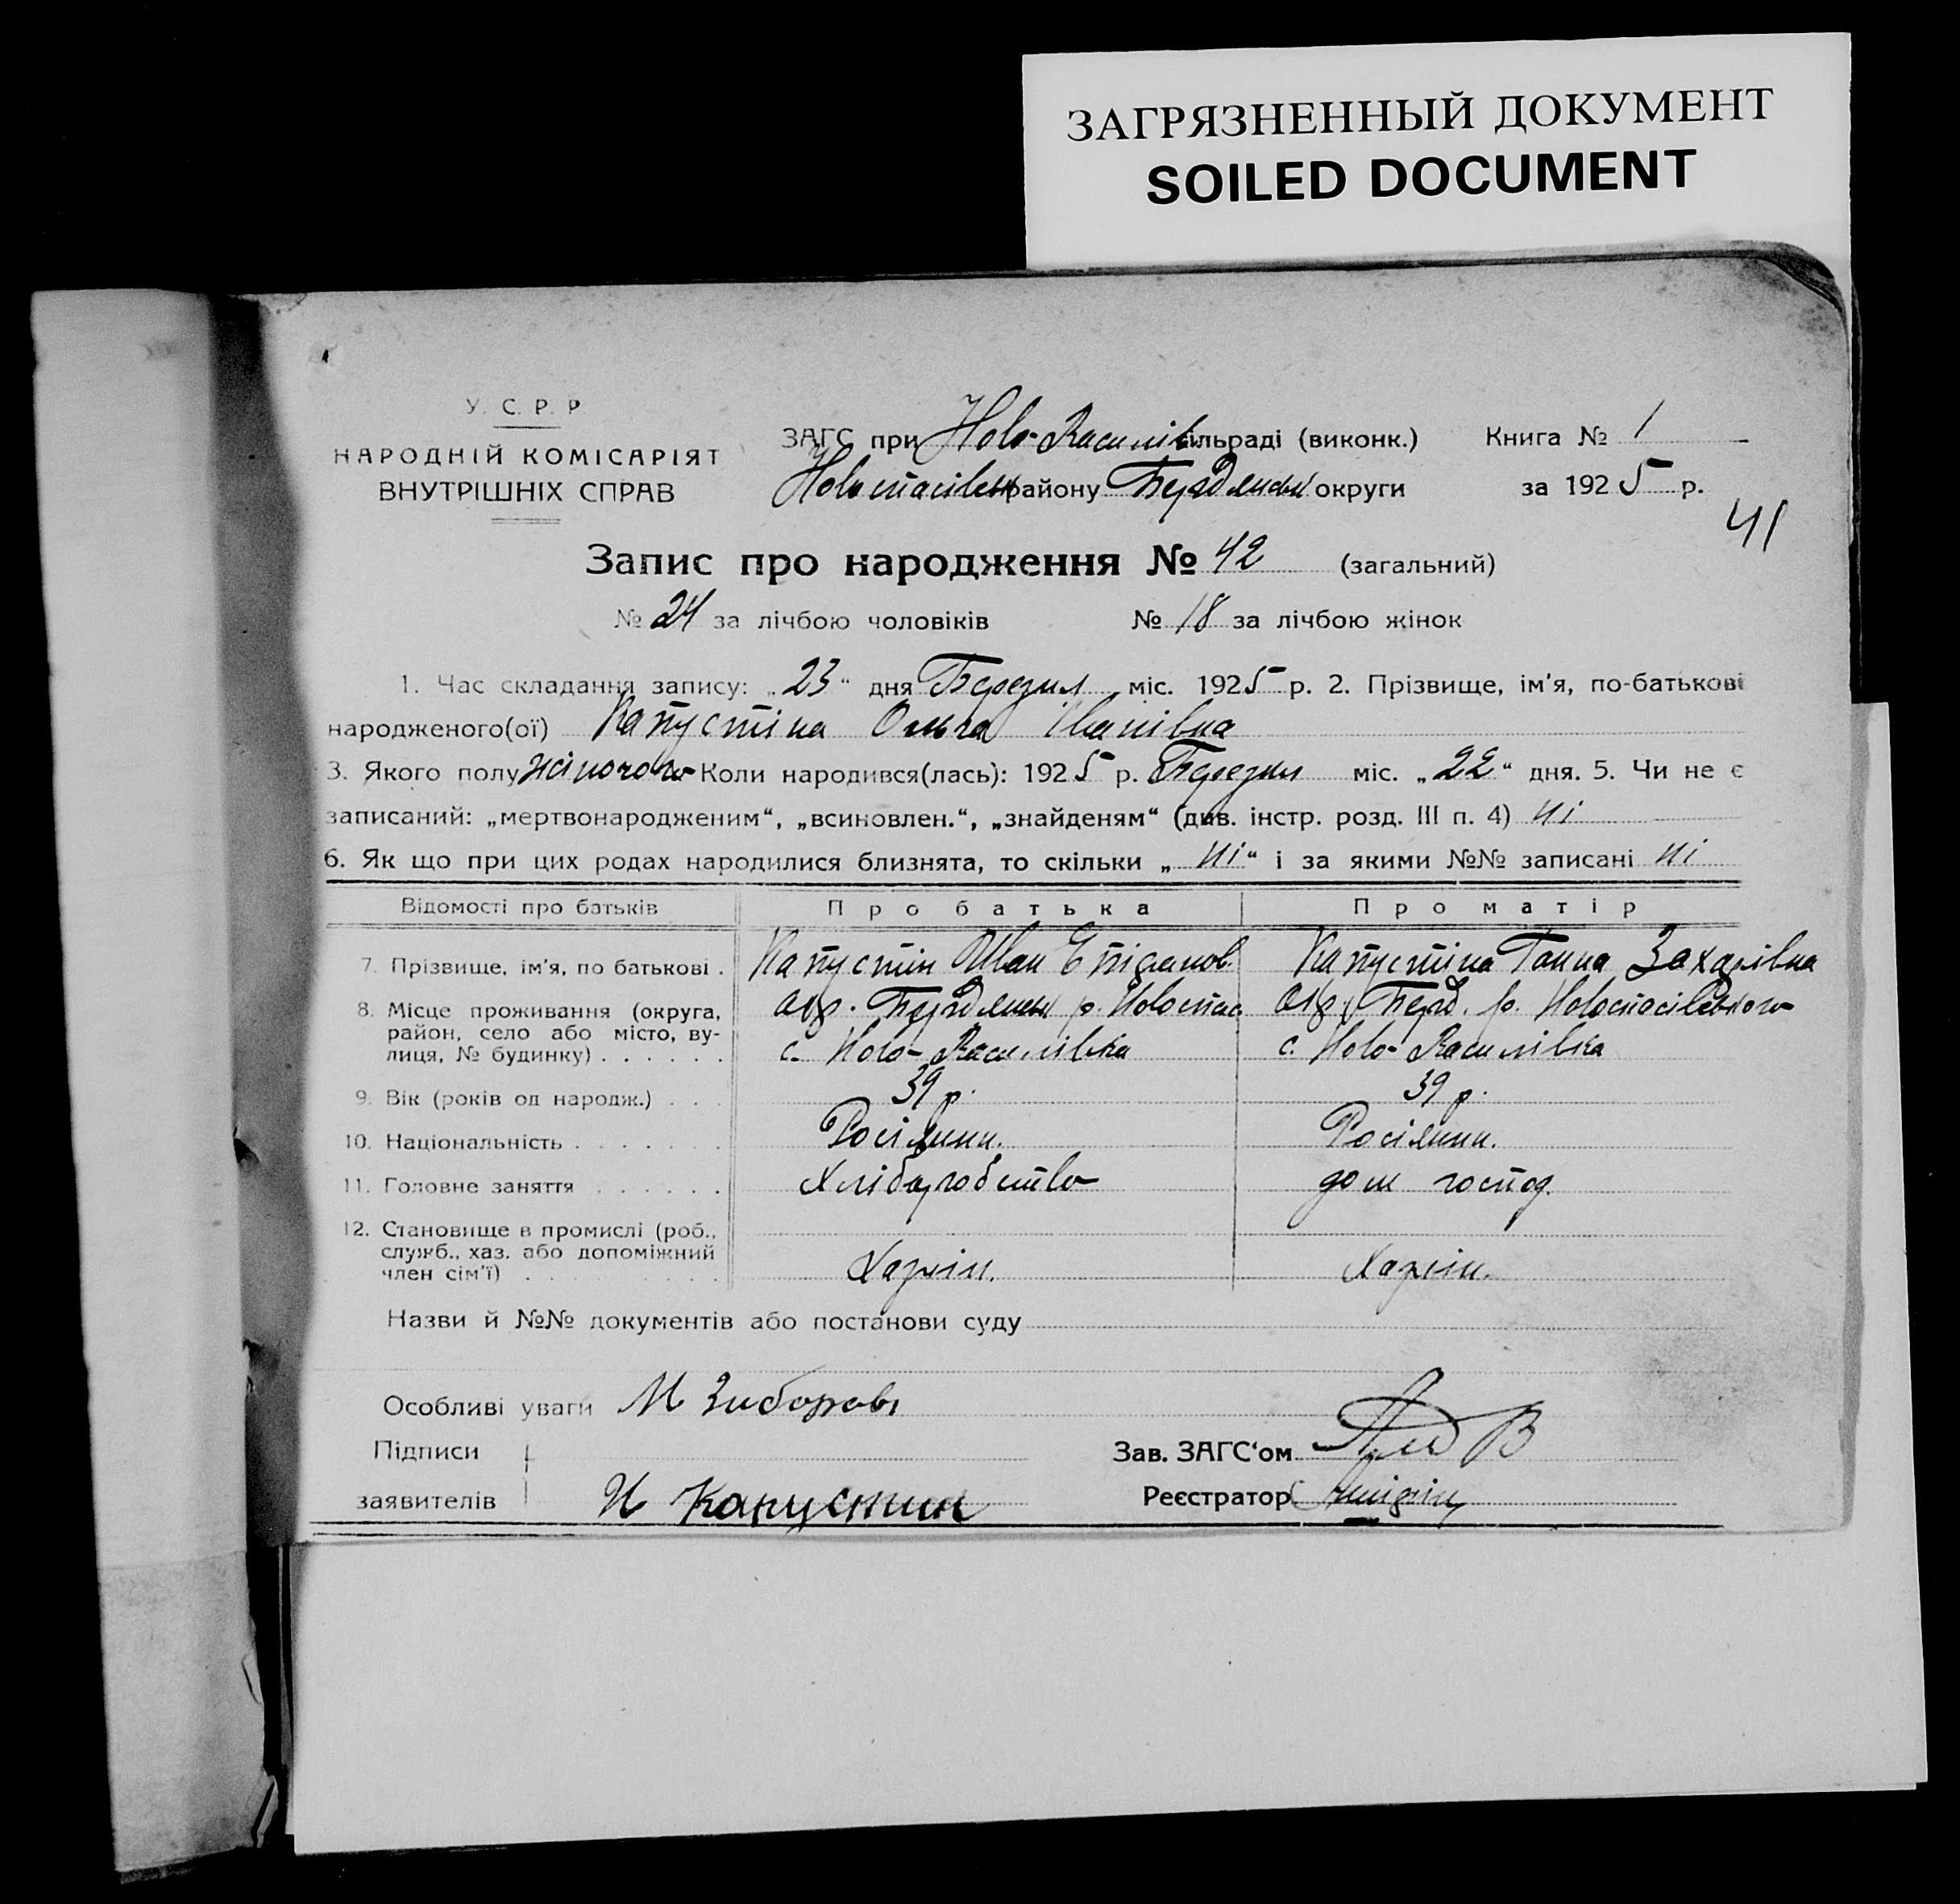 ЗАГРЯЗНЕННЫЙ ДОКУМЕНТ
SOILED DOCUMENT
У. С. Р. Р
НАРОДНІЙ КОМІСАРІЯТ
ВНУТРІШНІХ СПРАВ
ЗАГС при Ново-Василів сільраді (виконк.) Книга № 1
Новоспасівськ району Бердянськ округи за 1925 р.
41
Запис про народження № 42 (загальний)
№ 24 за лічбою чоловіків № 18 за лічбою жінок
1. Час складання запису: „23“ дня Березня міс. 1925 р. 2. Прізвище, ім'я, по-батькові
народженого(ої) Капустіна Ольга Іванівна
3. Якого полу жіночого Коли народився(лась): 1925 р. Березня міс. „22“ дня. 5. Чи не є
записаний: „мертвонародженим“, „всиновлен.“, „знайденям“ (див. інстр. розд. III п. 4) ні
6. Як що при цих родах народилися близнята, то скільки „ні“ і за якими №№ записані ні
Відомості про батьків Про батька Про матір
7. Прізвище, ім'я, по батькові . Капустін Иван Епіфанов. Капустіна Ганна Захарівна
8. Місце проживання (округа, район, село або місто, вулиця, № будинку) . . . . . . окр. Бердянськ р. Новоспас. окр. Берд. р. Новоспасівського
с. Ново-Василівка с. Ново-Василівка
9. Вік (років од народж.) . . . 39 р. 39 р.
10. Національність . . . . . . . Росіянин. Росіянин.
11. Головне заняття . . . . . . Хліборобство дом господ.
12. Становище в промислі (роб., служб., хаз. або допоміжний член сім'ї) . . . . . . . . . Хазяін. Хазяін.
Назви й №№ документів або постанови суду
Особливі уваги М Зиборовъ
Підписи Зав. ЗАГС‘ом
заявителів И Капустин Реєстратор